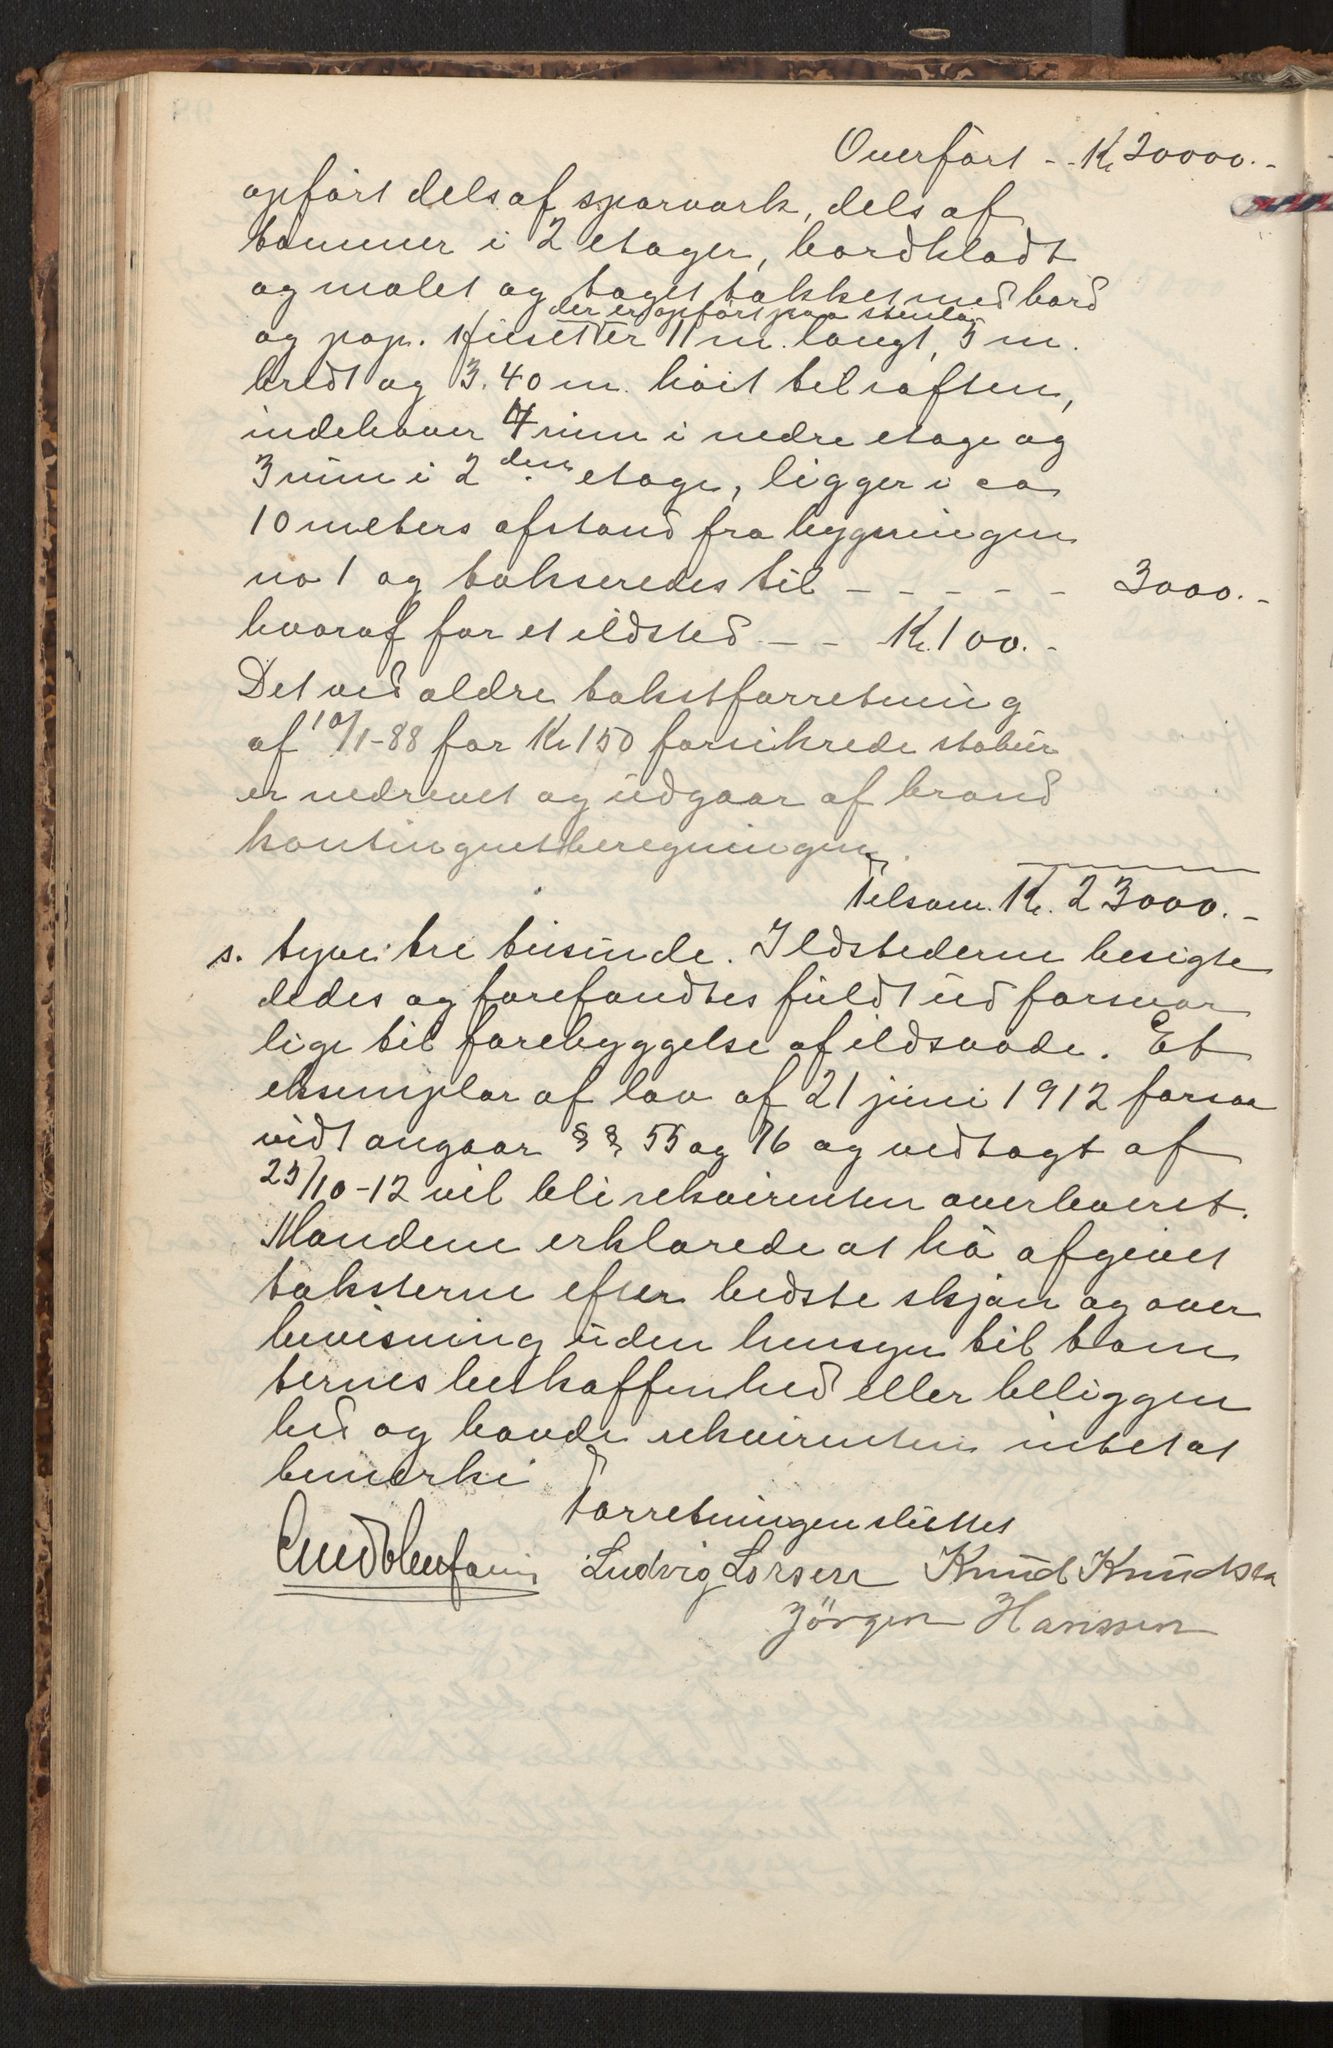 Overført - - Kr 20000.-
opført dels af sparværk, dels af
tømmer i 2 etager, bordklædt
og malet og taget tækket med bord
der er opført paa stenlag
og pap. Huset er 11 m. langt, 5 m.
bredt og 3.40 m. høit til raften,
indehaver 4 rum i nedre etage og
3 rum i 2 den etage, ligger i ca
10 meters afstand fra bygningen
no 1 og takseredes til - - - - - 3000.-
hvoraf for et ildsted - - Kr. 100.-
Det ved ældre takstforretning
af 10/1-88 for Kr 150 forsikrede stabur
er nedrevet og udgaar af brand
kontingentberegningen.
Tilsam. Kr. 23000.-
s. tyve tre tusinde. Ildstederne besigte
dedes og forefandtes fuldt ud forsvar
lige til forebyggelse af ildsvaade. Et
eksemplar af lov af 21 juni 1912 forsaa
vidt angaar §§ 55 og 76 og vedtægt af
25/10-12 vil bli rekvirenten overleveret.
Mændene erklærede at ha afgivet
taksterne efter bedste skjøn og over
bevisning uden hensyn til tom
ternes beskaffenhed eller beliggen
hed og havde rekvirenten intet at
bemerke
Forretningen sluttet
Ludvig Larsen Knud Knudsen
Jörgen Hanssen